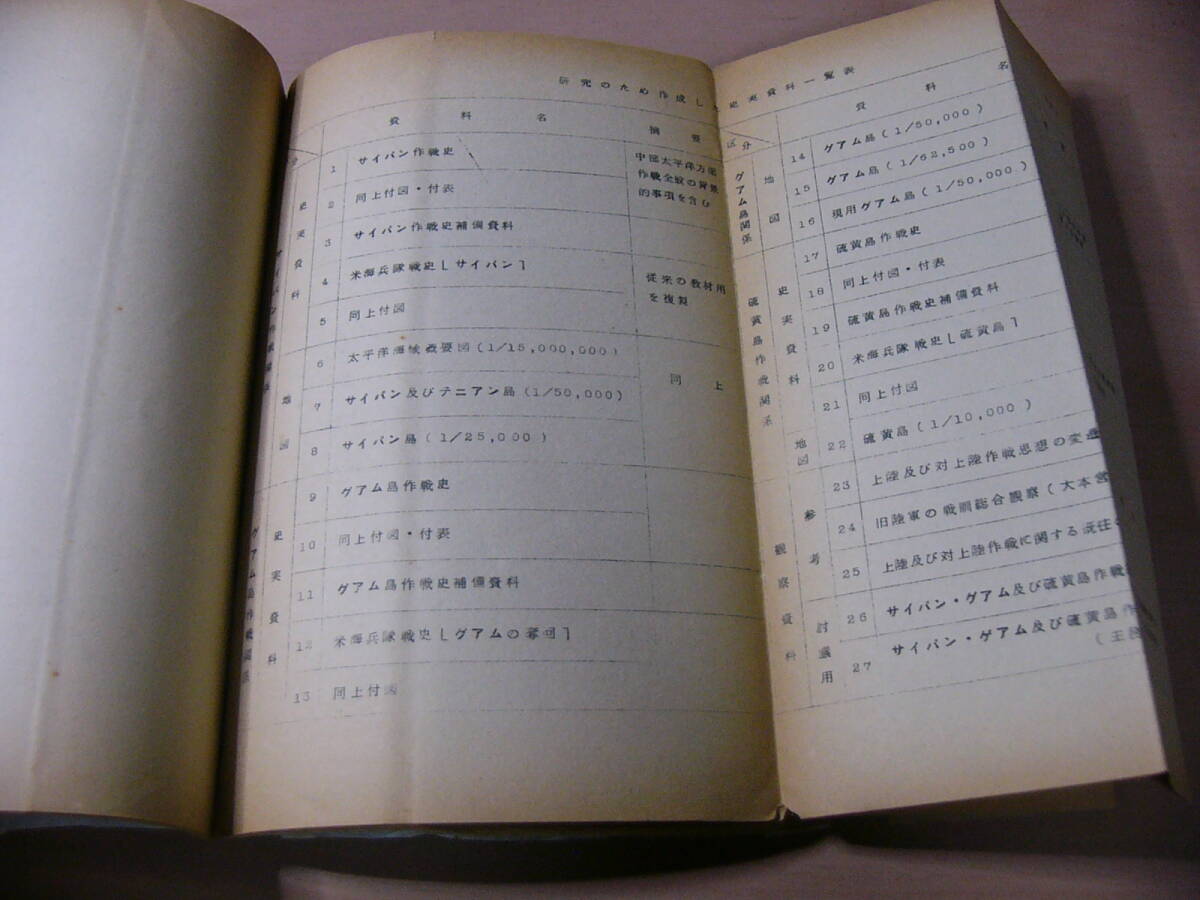 研究のため作成した史実資料一覧表
資料名
摘要
サイパン作戦関係
史実資料
1 サイパン作戦史
中部太平洋方面
作戦全般の背景
的事項を含む
2 同上付図・付表
3 サイパン作戦史補備資料
4 米海兵隊戦史[サイパン]
従来の教材用
を複製
5 同上付図
地図
6 太平洋海域概要図(1/15,000,000)
同上
7 サイパン及びテニアン島(1/50,000)
8 サイパン島(1/25,000)
グアム島作戦関係
史実資料
9 グアム島作戦史
10 同上付図・付表
11 グアム島作戦史補備資料
12 米海兵隊戦史[グアムの奪回]
13 同上付図
区分
資料名
グアム島関係
地図
14 グアム島(1/50,000)
15 グアム島(1/62,500)
16 現用グアム島(1/50,000)
硫黄島作戦関係
史実資料
17 硫黄島作戦史
18 同上付図・付表
19 硫黄島作戦史補備資料
20 米海兵隊戦史[硫黄島]
21 同上付図
地図
22 硫黄島(1/10,000)
観察資料
参考討議用
23 上陸及び対上陸作戦思想の変遷
24 旧陸軍の戦訓総合観察(大本営
25 上陸及び対上陸作戦に関する既往の
26 サイパン・グアム及び硫黄島作戦
27 サイパン・グアム及び硫黄島作